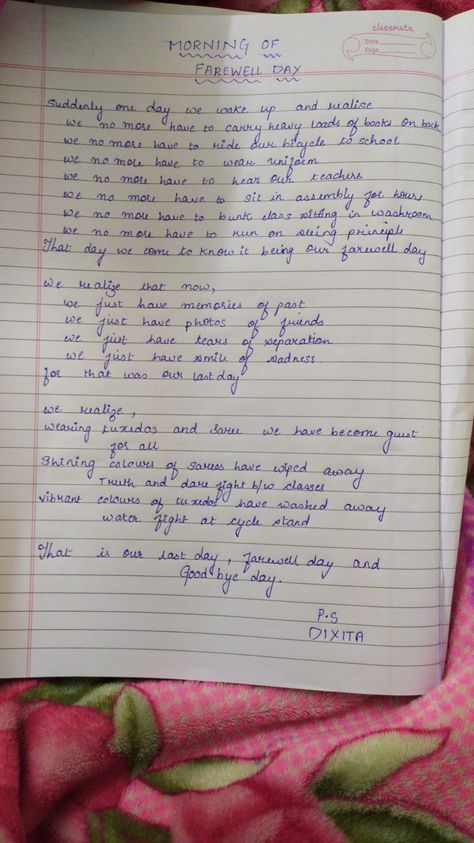 classmate
Date
Page
MORNING OF
FAREWELL DAY
Suddenly one day we wake up and realise
we no more have to carry heavy loads of books on back
we no more have to ride our bicycle to school
we no more have to wear uniform
we no more have to hear our teachers
we no more have to sit in assembly for hours
we no more have to bunk class sitting in washroom
we no more have to run on seeing principle
That day we come to know it being our farewell day
we realize that now,
we just have memories of past
we just have photos of friends
we just have tears of separation
we just have smile of sadness.
for that was our last day
we realize,
wearing tuxidos and saree we have become guest
for all
Shining colours of sarees have wiped away
Truth and dare fight b/w classes
vibrant colours of tuxedos have washed away
water fight at cycle stand
That is our last day, farewell day and
Good bye day.
P.S
DIXITA